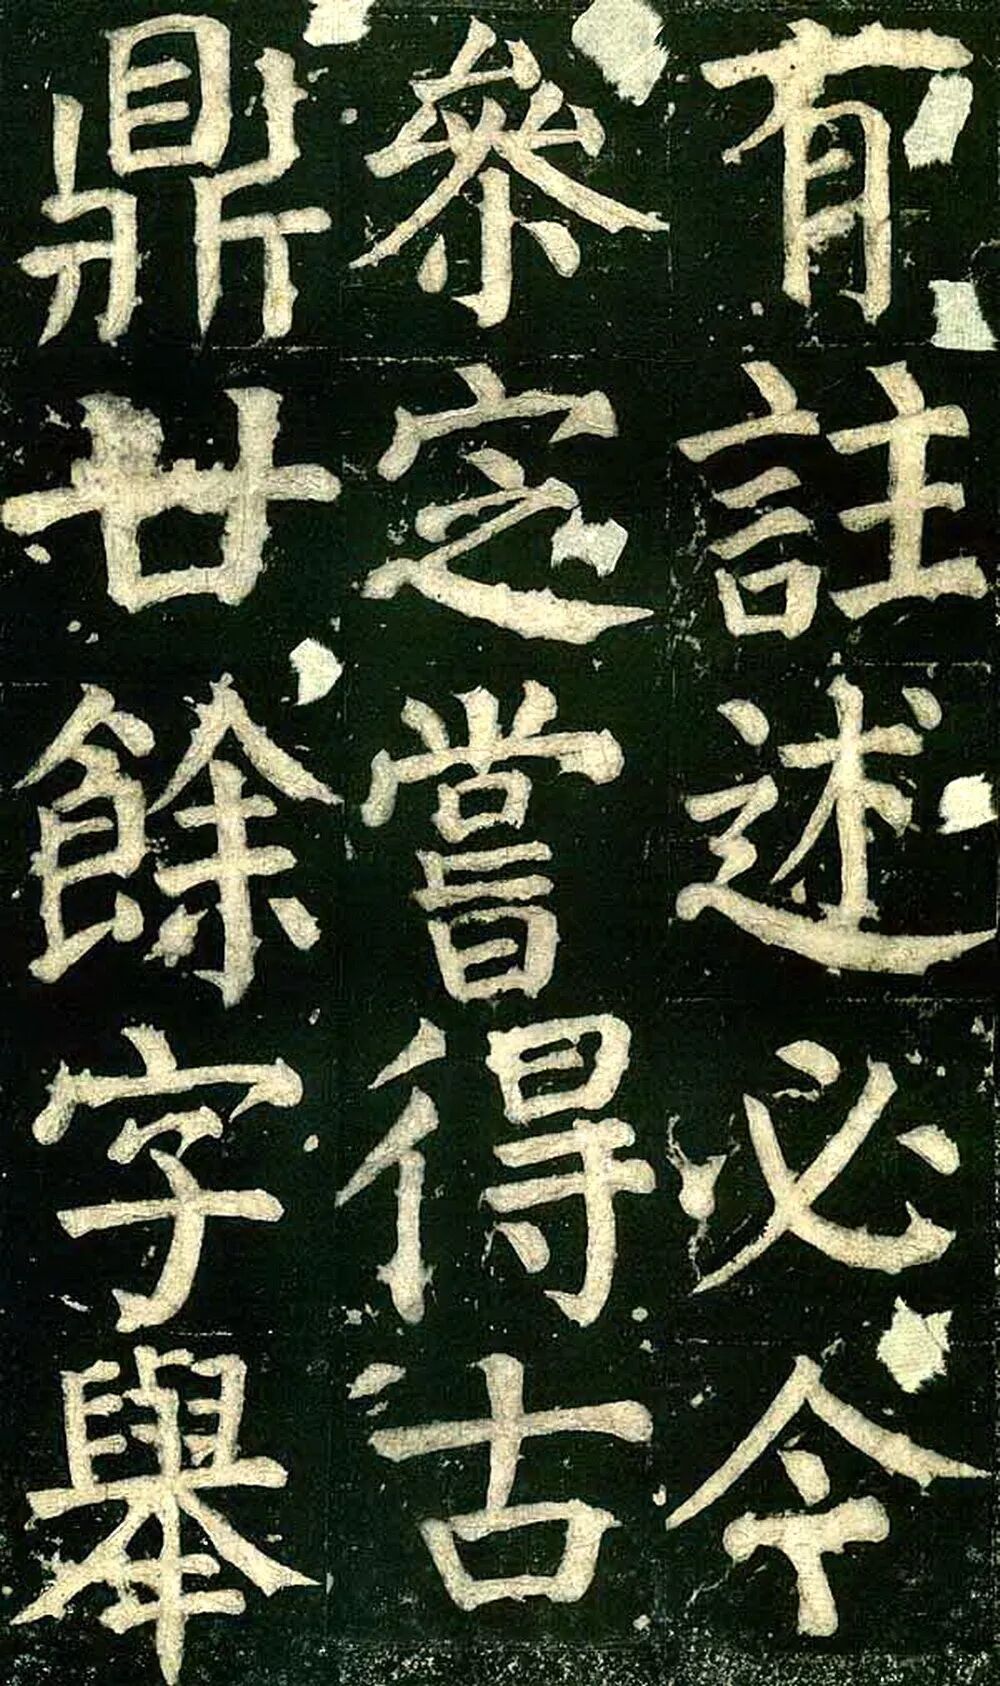 有註述必令
叅定嘗得古
鼎廿餘字舉